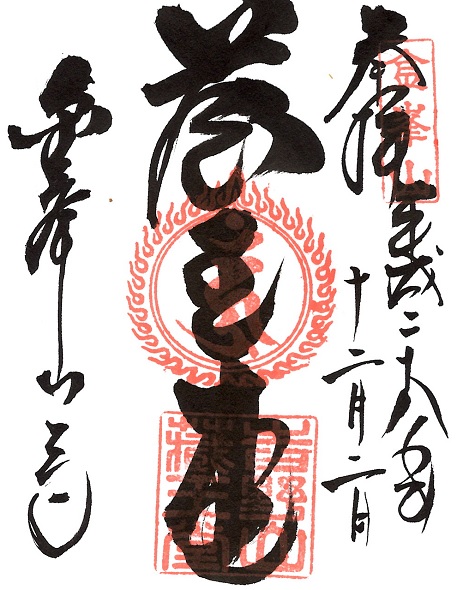 奉拝
金峯山
平成二十八年
十二月二日
蔵王堂
金峯山寺